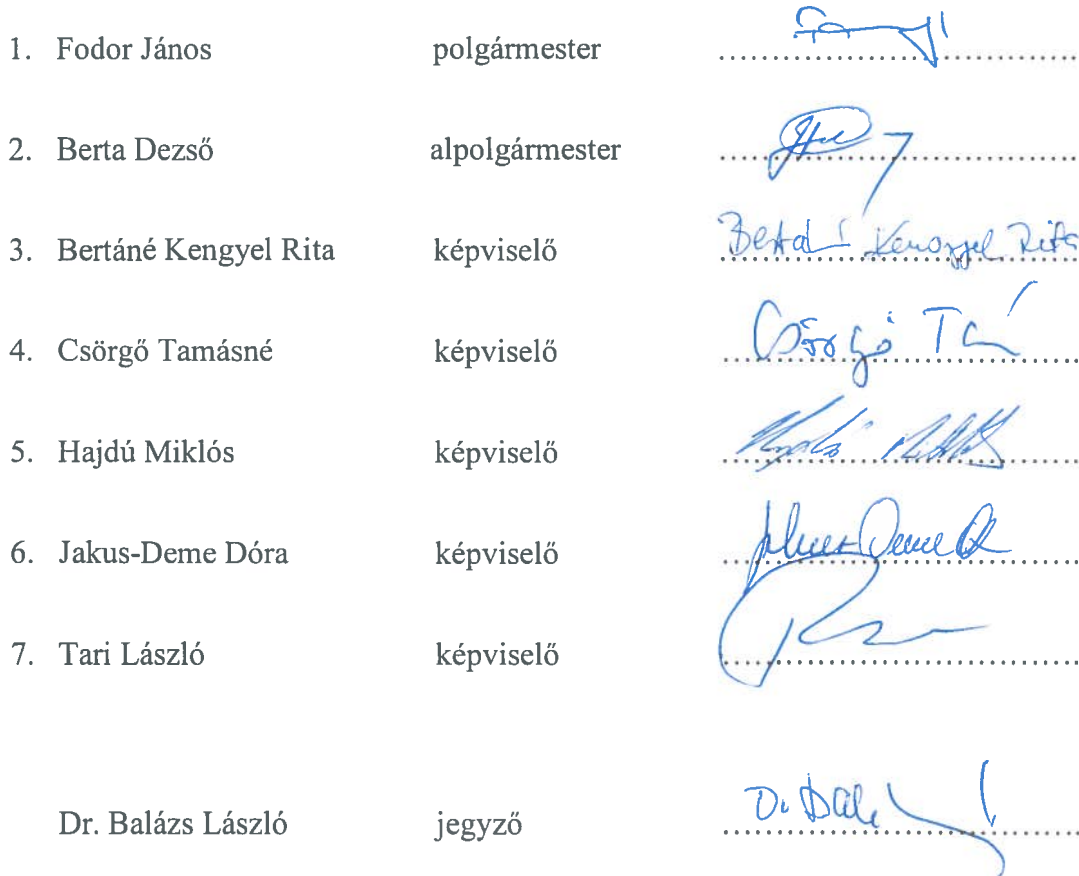 1. Fodor János polgármester
2. Berta Dezső alpolgármester
3. Bertáné Kengyel Rita képviselő Kengyel Rita
4. Csörgő Tamásné képviselő Csörgő
5. Hajdú Miklós képviselő
6. Jakus-Deme Dóra képviselő
7. Tari László képviselő
Dr. Balázs László jegyző